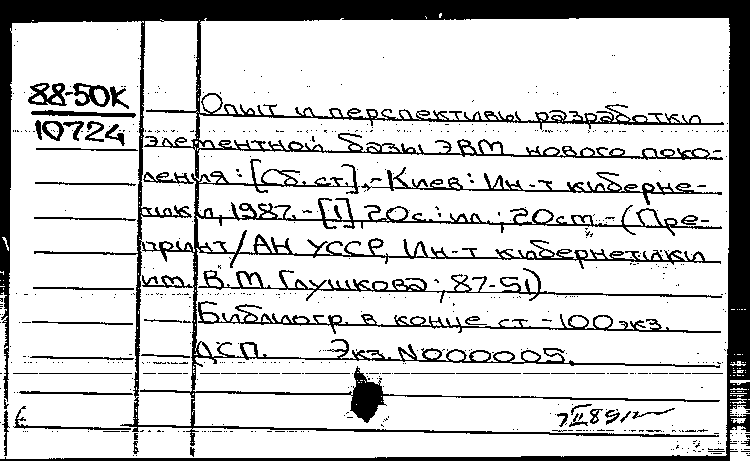 88-50К
10724
Опыт и перспективы разработки
элементной базы ЭВМ нового поко-
ления: [Сб. ст.]. - Киев: Ин-т киберне-
тики, 1987. - [1], 20с.: ил.; 20ст. - (Пре-
принт/АН УССР, Ин-т кибернетики
им. В.М. Глушкова; 87-51)
Библиогр. в конце ст. - 100 экз.
ДСП. Экз. N000005.